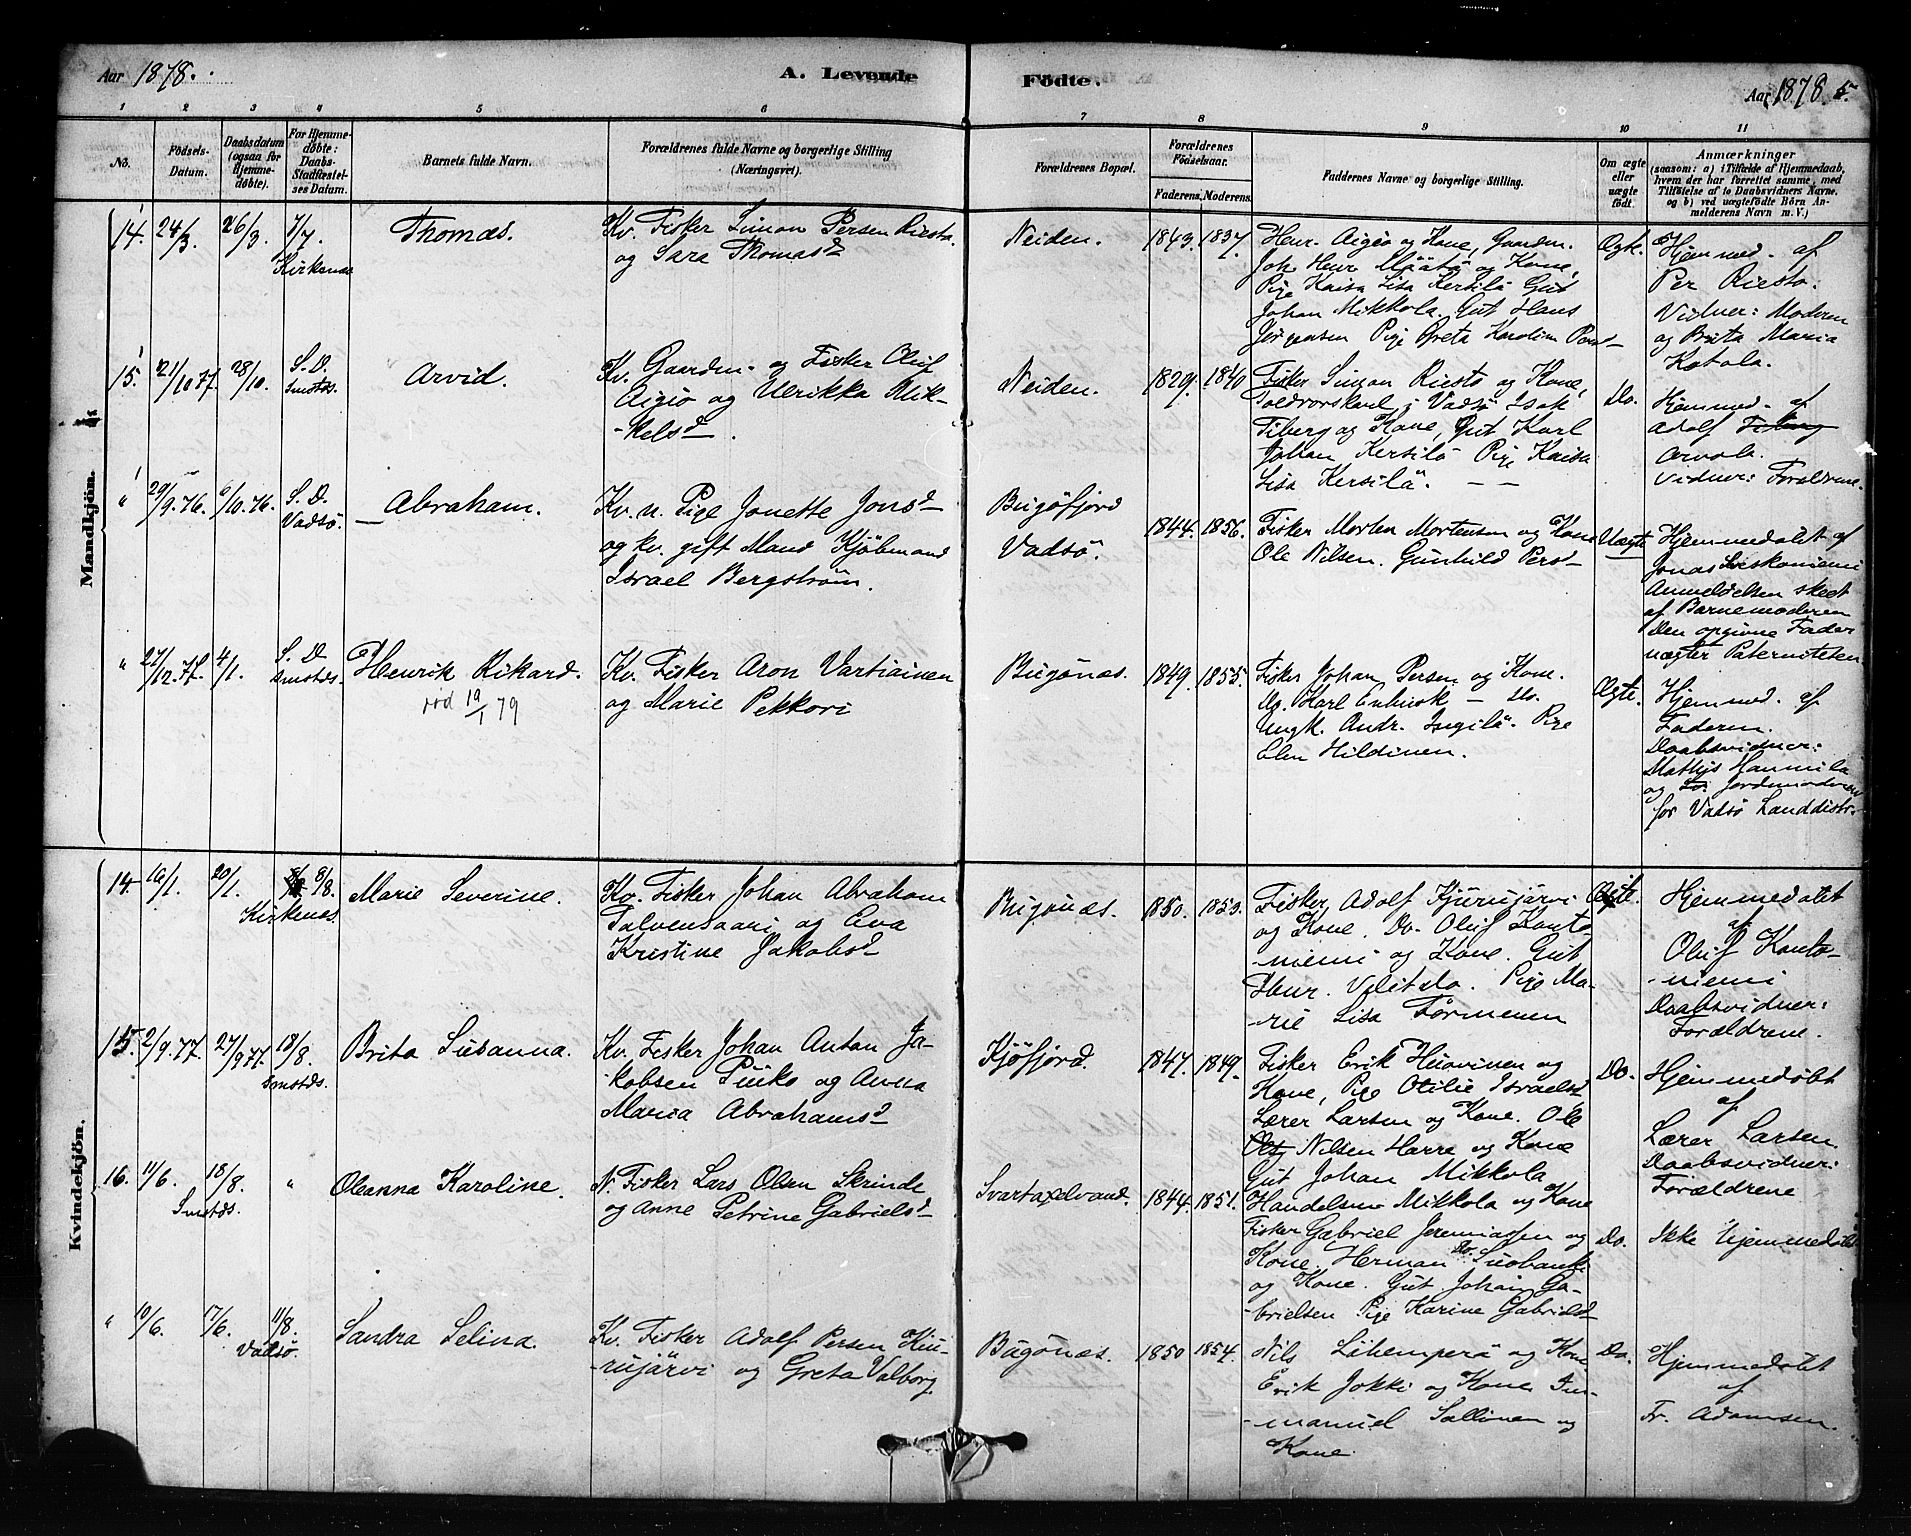 Aar 1878.
A. Levende Födte.
Aar 1878. 5.
1 2 3 4 5 6 7 8 9 10 11
No.
Födsels-
Datum.
Daabsdatum
(ogsaa for
Hjemme-
døbte).
For Hjemme-
døbte:
Daabs-
Stadfæstel-
ses Datum.
Barnets fulde Navn.
Forældrenes fulde Navne og borgerlige Stilling
(Næringsvei).
Forældrenes Bopæl.
Forældrenes
Fødselsaar.
Faderens. Moderens.
Faddernes Navne og borgerlige Stilling.
Om ægte
eller
uægte
født.
Anmærkninger
(saasom: a) i Tilfælde af Hjemmedaab,
hvem der har forrettet samme, med
Tilføielse af to Daabsvidners Navne,
og b) ved uægtefödte Börn An-
melderens Navn m. V.)
Mandkjön.
14. 24/3 26/3 7/7 Kirkenæs
Thomas.
Kv. Fisker Simon Persen Riesto
og Sara Thomasd
Neiden.
1843. 1837.
Henr. Aigiö og Kone, Gaardm.
Joh. Henr. Määtä og Kone,
Pige Kaisa Lisa Kersilö Gut
Johan Mikkola. Gut Hans
Jörgensen Pige Greta Karolin Persd
Ægte.
Hjemmed. af
Per Riesto.
Vidner: Moderen
og Brita Maria
Kotola.
15. 21/10 77. 28/10. S. D. Smstds.
Arvid.
Kv. Gaardm. og Fisker Oluf
Aigiö og Ulrikka Mik-
kelsd.
Neiden.
1829. 1840
Fisker Simon Riesto og Kone,
Toldrorskarl i Vadsö Isak
Fiberg og Kone, Gut Karl
Johan Kersilö Pige Kaisa
Lisa Kersilö.
Do.
Hjemmed. af
Adolf
Arvola.
Vidner: Foraldrene.
" 29/9. 76. 6/10. 76. S. D. Vadsö.
Abraham.
Kv. u. Pige Jonette Jonsd
og kv. gift Mand Kjöbmand
Israel Bergström.
Bugöfjord
Vadsö.
1844. 1856.
Fisker Morten Mortensen og Kone
Ole Nilsen. Gunhild Persd
Uægte
Hjemmedøbt af
Jonas
Anmeldelsen skeet
af Barnemoderen
Den opgivne Fader
nægter Paterniteten.
" 27/12. 77. 4/1. S. D Smstds.
Henrik Rikard.
död 19/1 79
Kv. Fisker Aron Vartiainen
og Marie Pekkori
Bugönæs.
1849. 1855.
Fisker Johan Persen og Kone.
Do. Karl Enbusk – Do.
Ungk. Andr. Ingilä. Pige
Elen Hildinen.
Ægte.
Hjemmed. af
Faderen.
Daabsvidner:
Mathis Hannila
og Jordemoderen
for Vadsö Landdistr.
Kvindekjön.
14. 16/1. 20/1. 8/8. Kirkenæs.
Marie Severine.
Kv. Fisker Johan Abraham
Talvensaari og Eva
Kristine Jakobsd
Bugönæs.
1850. 1853.
Fisker Adolf Kjurujärvi
og Kone. Do. Oluf Konto-
niemi og Kone. Gut
Henr. Pige Ma-
rie Lisa Törmenen
Ægte.
Hjemmedøbt
af
Oluf Konto-
niemi
Daabsvidner:
Forældrene.
15. 2/9. 77. 27/9 77. 18/8. Smstds.
Brita Susanna.
Kv. Fisker Johan Antan Ja-
kobsen Puiko og Anna
Maria Abrahamsd
Kjöfjord.
1847. 1849.
Fisker Erik Huovinen og
Kone, Pige Otilie Israelsd
Lærer Larsen og Kone. Ole
Nilsen Harre og Kone
Gut Johan Mikkola
Do.
Hjemmedøbt
af
Lærer Larsen
Daabsvidner:
Forældrene
16. 11/6. 18/8. Smstds. "
Oleanna Karoline.
N. Fisker Lars Olsen Skrinde
og Anne Petrine Gabrielsd
Svartaxelvand.
1844. 1851.
Handelsm Mikkola og Kone
Fisker Gabriel Jeremiassen og
Kone. Herman Do. Suobanki
og Kone. Gut Johan Ga-
brielsen Pige Karine Gabrielsd
Do.
Ikke hjemmedøbt
" 10/6. 17/6. 11/8. Vadsö.
Sandra Selina.
Kv. Fisker Adolf Persen Kiu-
rujärvi og Greta Valborg
Bugönæs.
1850 1854.
Nils og Kone
Erik Jokki og Kone Im-
manuel Sallinen og
Kone.
Do.
Hjemmedøbt
af
Fr. Adamsen.